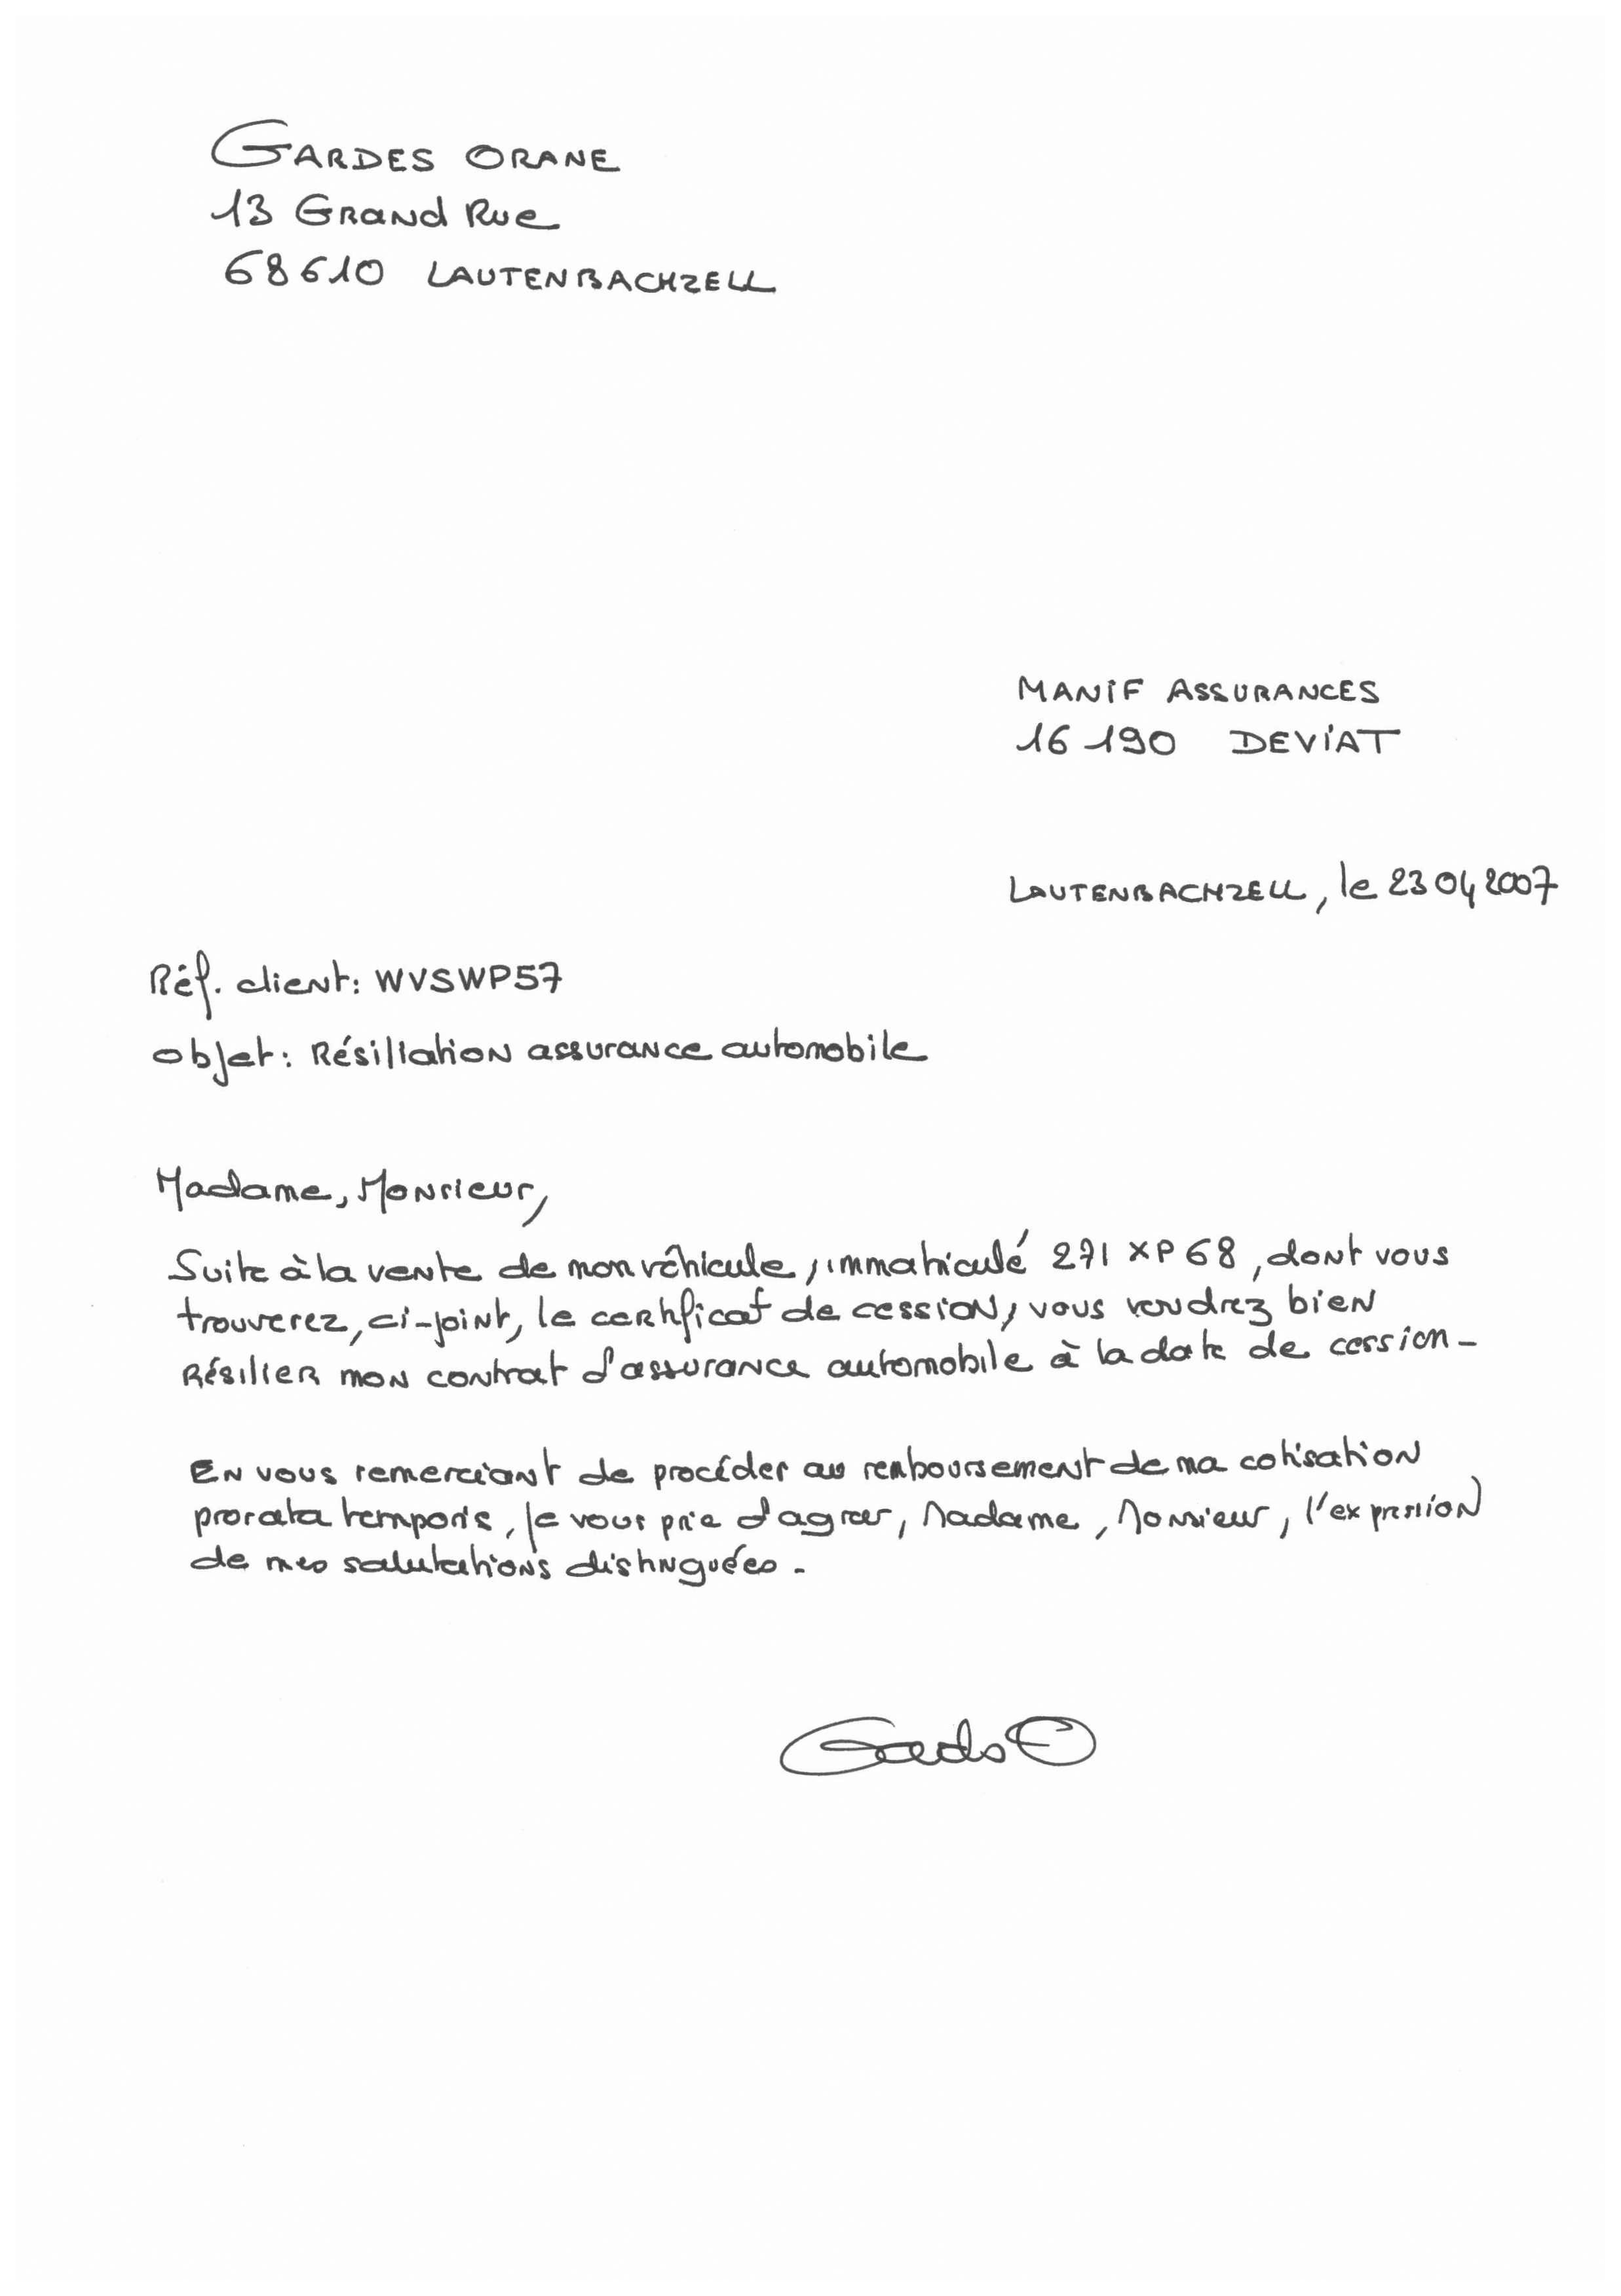 GARDES ORANE
13 Grand Rue
68610 LAUTENBACHZELL
MANIF ASSURANCES
16190 DEVIAT
LAUTENBACHZELL, le 23 04 2007
Réf. client: WVSWP57
Objet: Résiliation assurance automobile
Madame, Monsieur,
Suite à la vente de mon véhicule, immatriculé 271 XP 68, dont vous
trouverez, ci-joint, le certificat de cession, vous voudrez bien
résilier mon contrat d'assurance automobile à la date de cession-
En vous remerciant de procéder au remboursement de ma cotisation
prorata temporis, je vous prie d'agréer, Madame, Monsieur, l'expression
de mes salutations distinguées.
Gardes O